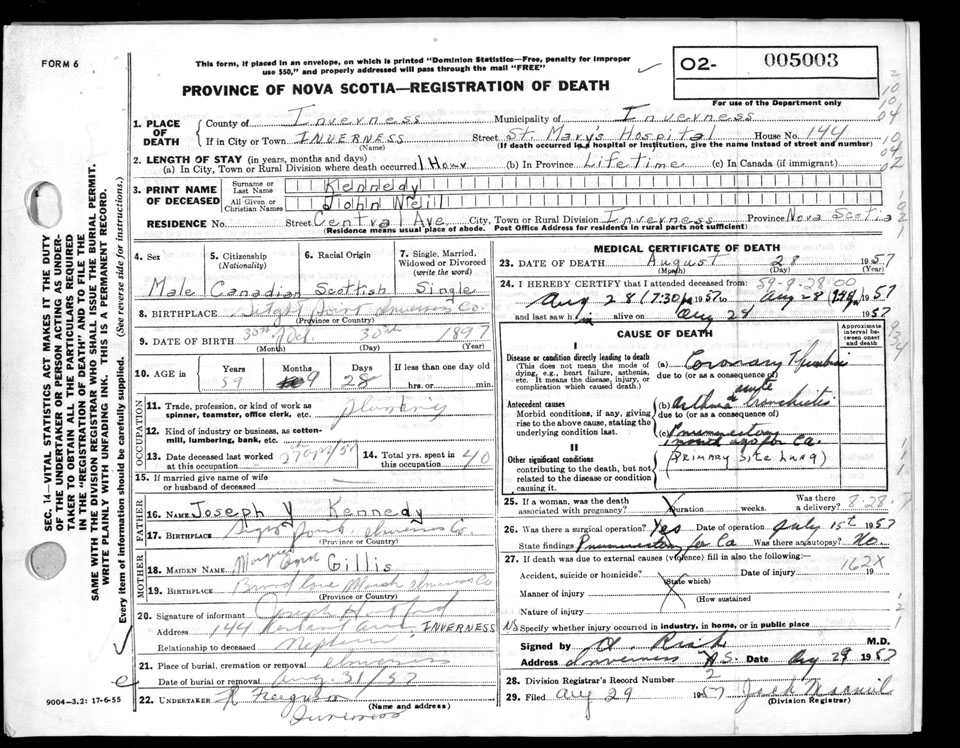 FORM 6
This form, if placed in an envelope, on which is printed "Dominion Statistics—Free, penalty for improper
use $50," and properly addressed will pass through the mail "FREE"
02- 005003
For use of the Department only
PROVINCE OF NOVA SCOTIA—REGISTRATION OF DEATH
1. PLACE OF DEATH
County of Inverness Municipality of Inverness
If in City or Town INVERNESS Street St. Mary's Hospital House No. 144
(Name) (If death occurred in a hospital or institution, give the name instead of street and number)
2. LENGTH OF STAY (in years, months and days)
(a) In City, Town or Rural Division where death occurred 1 Hour (b) In Province Lifetime (c) In Canada (if immigrant)
3. PRINT NAME OF DECEASED
Surname or Last Name Kennedy
All Given or Christian Names John Neill
RESIDENCE No. Street Central Ave City, Town or Rural Division Inverness Province Nova Scotia
(Residence means usual place of abode. Post Office Address for residents in rural parts not sufficient)
4. Sex Male
5. Citizenship (Nationality) Canadian
6. Racial Origin Scottish
7. Single, Married, Widowed or Divorced (write the word) Single
8. BIRTHPLACE Point Inverness Co.
(Province or Country)
9. DATE OF BIRTH 30th 1897
(Month) (Day) (Year)
10. AGE in Years 59 Months 9 Days 28 If less than one day old hrs. or min.
OCCUPATION
11. Trade, profession, or kind of work as spinner, teamster, office clerk, etc.
12. Kind of industry or business, as cotton-mill, lumbering, bank, etc.
13. Date deceased last worked at this occupation
14. Total yrs. spent in this occupation 40
15. If married give name of wife or husband of deceased
FATHER
16. NAME Joseph Kennedy
17. BIRTHPLACE Point Inverness Co.
(Province or Country)
MOTHER
18. MAIDEN NAME Ann Gillis
19. BIRTHPLACE Broad Cove Marsh Inverness Co
(Province or Country)
20. Signature of informant Joseph
Address 144 INVERNESS
Relationship to deceased Nephew
21. Place of burial, cremation or removal Inverness
Date of burial or removal Aug. 31/57
22. UNDERTAKER Ferguson
(Name and address)
Inverness
9004—3.2: 17-6-55
MEDICAL CERTIFICATE OF DEATH
23. DATE OF DEATH August 28 1957
(Month) (Day) (Year)
59-9-28-00
24. I HEREBY CERTIFY that I attended deceased from:
Aug 28 1957 to Aug 28 1957
and last saw him alive on Aug 28 1957
CAUSE OF DEATH
Approximate interval between onset and death
I
Disease or condition directly leading to death
(This does not mean the mode of dying, e.g. heart failure, asthenia, etc. It means the disease, injury, or complication which caused death.)
(a) Coronary
due to (or as a consequence of)
Antecedent causes
Morbid conditions, if any, giving rise to the above cause, stating the underlying condition last.
acute
(b) Asthma bronchitis
due to (or as a consequence of)
(c) for Ca.
(Primary Site Lung)
II
Other significant conditions
contributing to the death, but not related to the disease or condition causing it.
25. If a woman, was the death associated with pregnancy? Duration weeks. Was there a delivery? 8-28-7
26. Was there a surgical operation? Yes Date of operation July 15th 1957
State findings for Ca Was there an autopsy? No.
27. If death was due to external causes (violence) fill in also the following:—
162X
Accident, suicide or homicide? (State which) Date of injury 19
Manner of injury (How sustained
Nature of injury
Specify whether injury occurred in industry, in home, or in public place
Signed by M.D.
Address Inverness N.S. Date Aug 29 1957
28. Division Registrar's Record Number 2
29. Filed Aug 29 1957
(Division Registrar)
SEC. 14—VITAL STATISTICS ACT MAKES IT THE DUTY
OF THE UNDERTAKER OR PERSON ACTING AS UNDER-
TAKER TO OBTAIN ALL THE PARTICULARS REQUIRED
IN THE "REGISTRATION OF DEATH" AND TO FILE THE
SAME WITH THE DIVISION REGISTRAR WHO SHALL ISSUE THE BURIAL PERMIT.
WRITE PLAINLY WITH UNFADING INK. THIS IS A PERMANENT RECORD.
Every item of information should be carefully supplied. (See reverse side for instructions.)